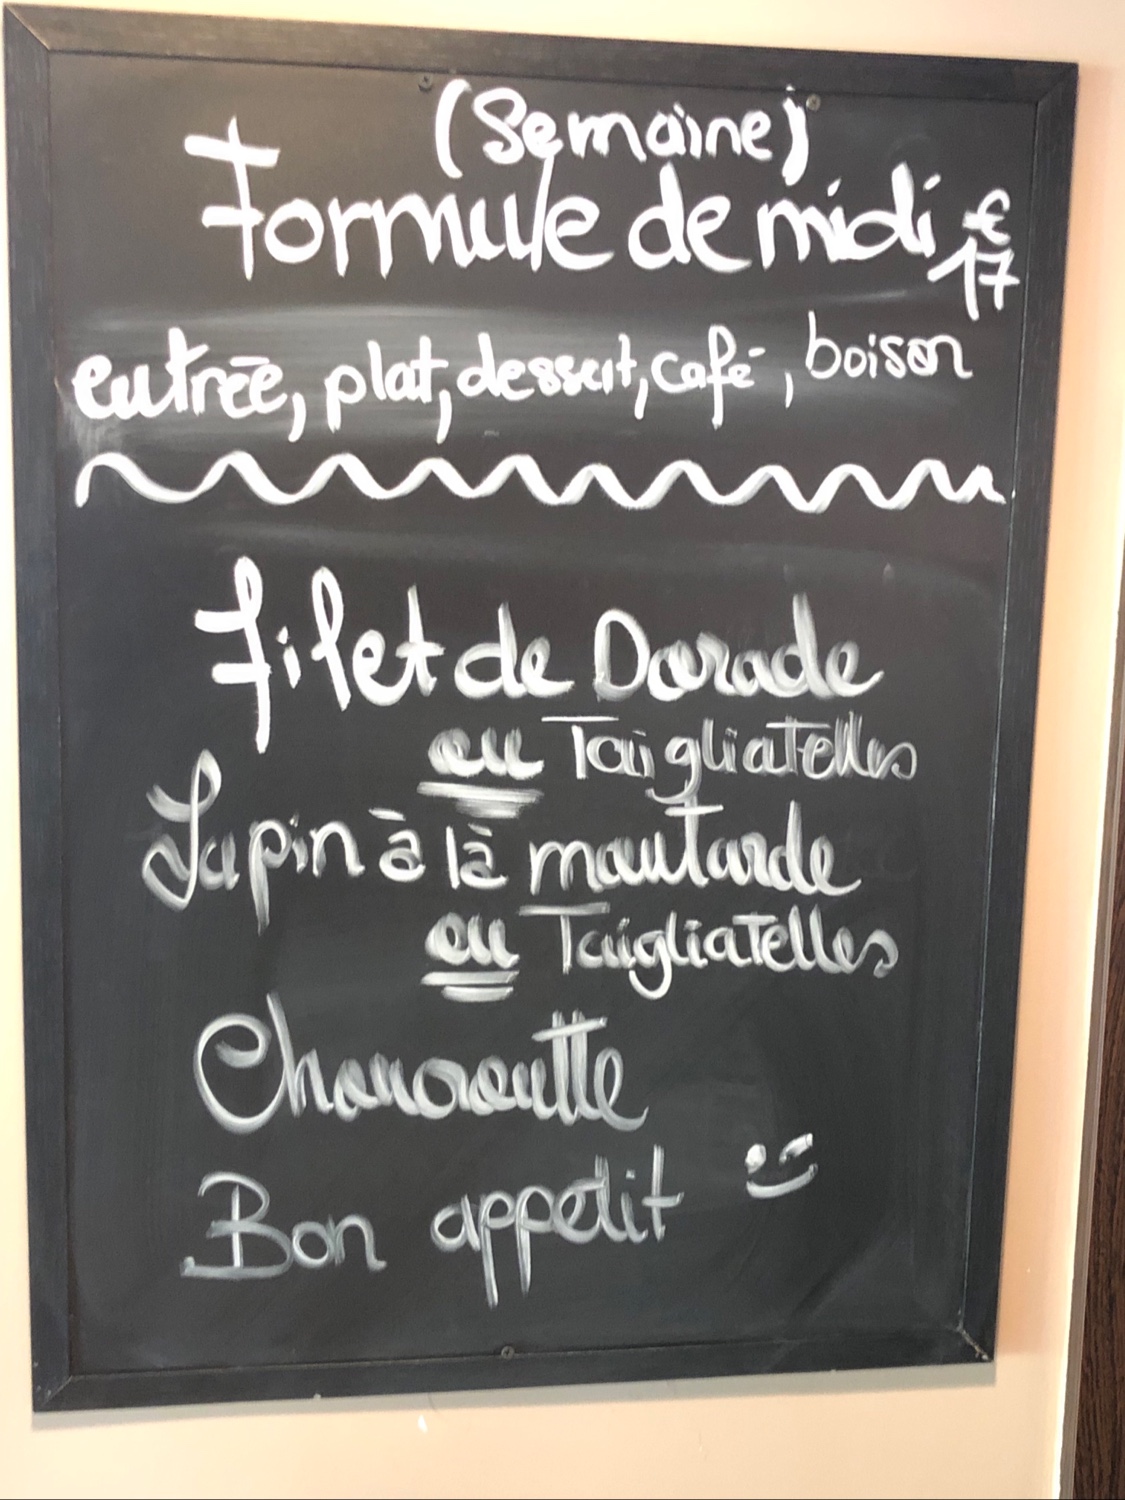 (Semaine)
Formule de midi €
17
entrée, plat, dessert, café, boison
Filet de Dorade
ou Taigliatelles
Lapin à là moutarde
ou Taigliatelles
Choucroutte
Bon appetit